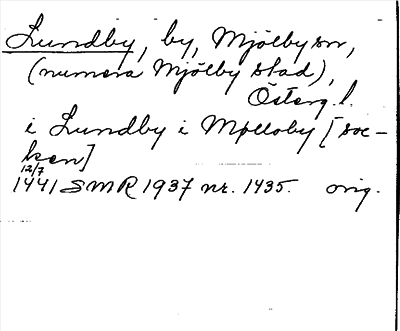 Lundby, by, Mjölby sn,
(numera Mjölby stad),
Österg. l.
i Lundby i Mølloby [soc-
ken]
12/7
1441 SMR 1937 nr. 1435. orig.